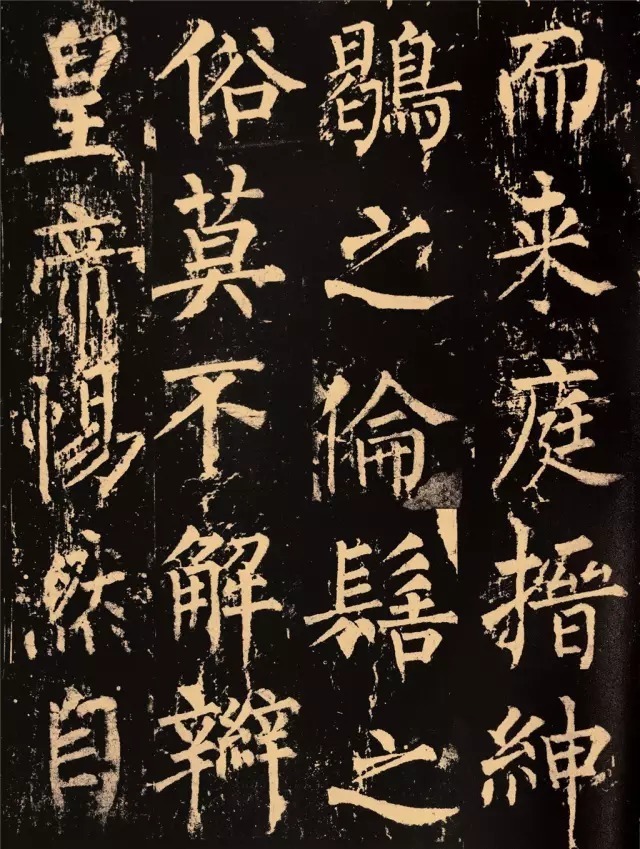 而来庭搢紳
鶡之倫之
俗莫不解辮
皇帝惕然自